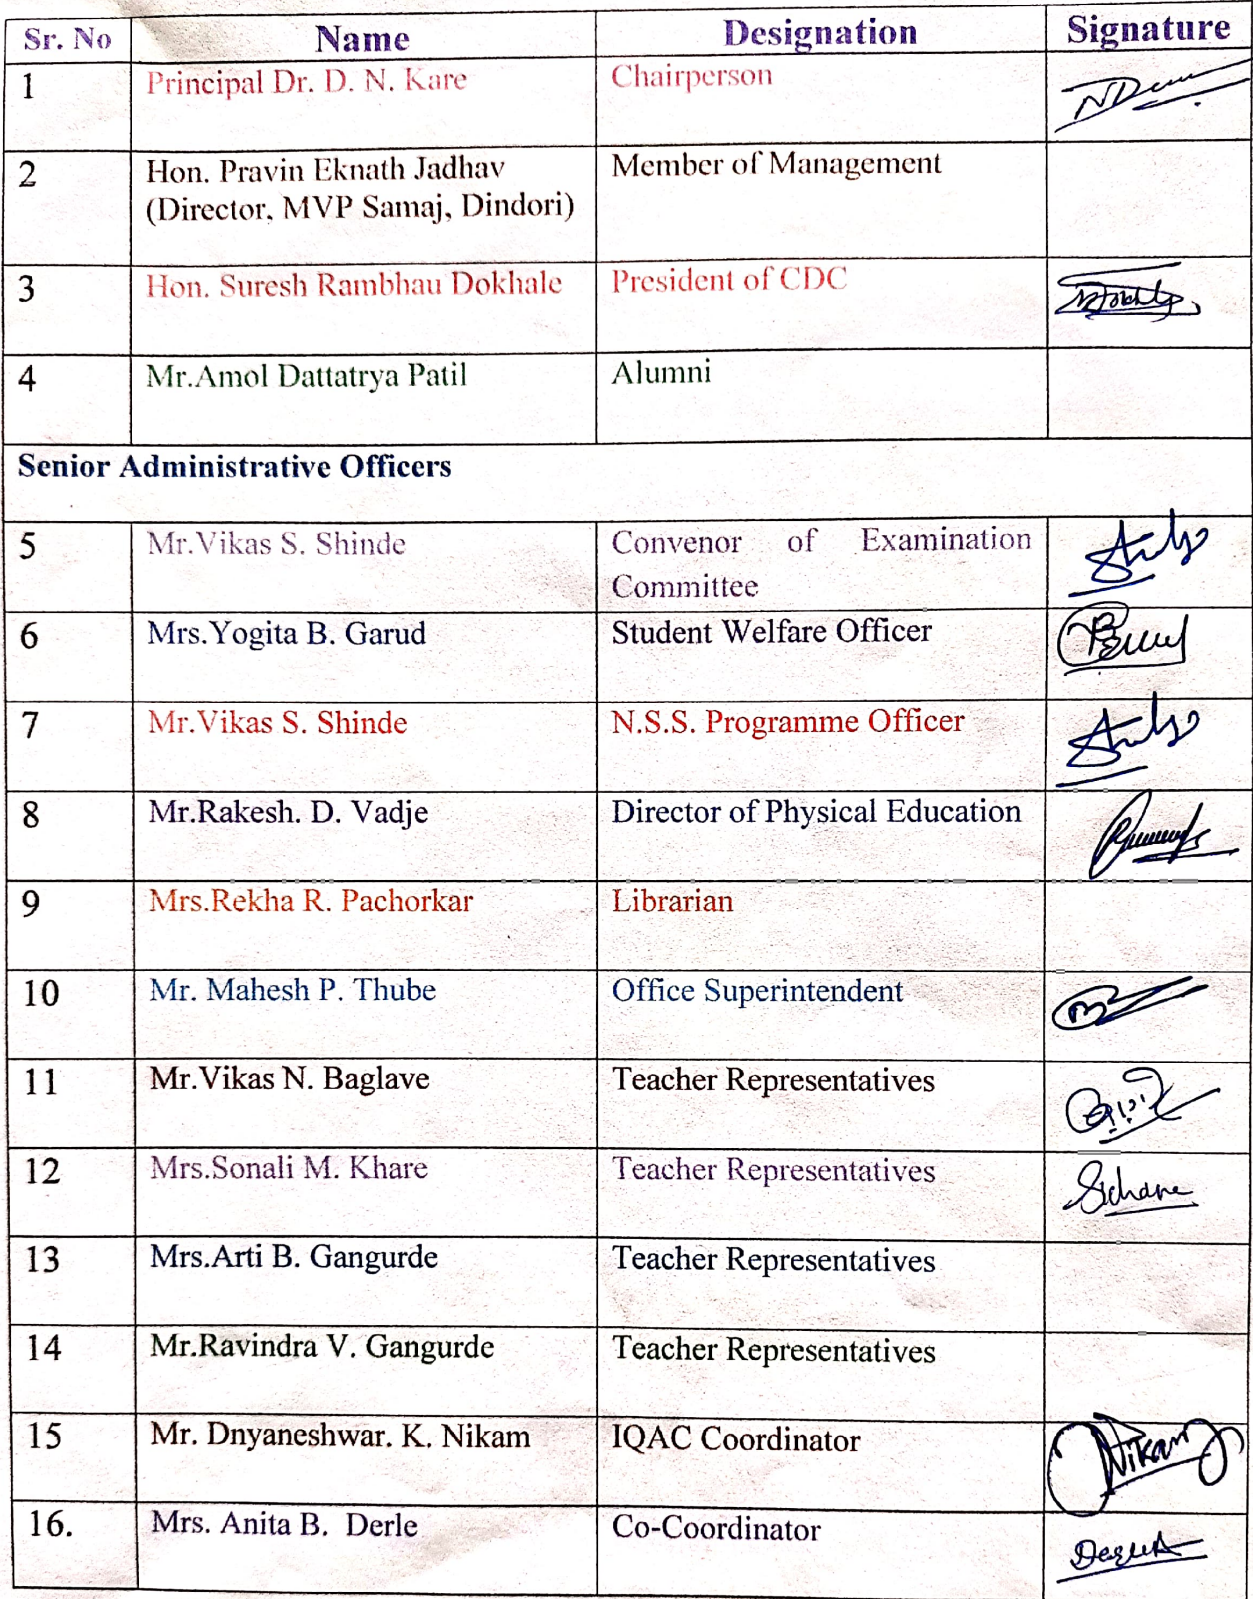 Sr. No Name Designation Signature
1 Principal Dr. D. N. Kare Chairperson
2 Hon. Pravin Eknath Jadhav Member of Management
(Director, MVP Samaj, Dindori)
3 Hon. Suresh Rambhau Dokhale President of CDC
4 Mr.Amol Dattatrya Patil Alumni
Senior Administrative Officers
5 Mr.Vikas S. Shinde Convenor of Examination
Committee
6 Mrs.Yogita B. Garud Student Welfare Officer
7 Mr.Vikas S. Shinde N.S.S. Programme Officer
8 Mr.Rakesh. D. Vadje Director of Physical Education
9 Mrs.Rekha R. Pachorkar Librarian
10 Mr. Mahesh P. Thube Office Superintendent
11 Mr.Vikas N. Baglave Teacher Representatives
12 Mrs.Sonali M. Khare Teacher Representatives
13 Mrs.Arti B. Gangurde Teacher Representatives
14 Mr.Ravindra V. Gangurde Teacher Representatives
15 Mr. Dnyaneshwar. K. Nikam IQAC Coordinator Nikam
16. Mrs. Anita B. Derle Co-Coordinator